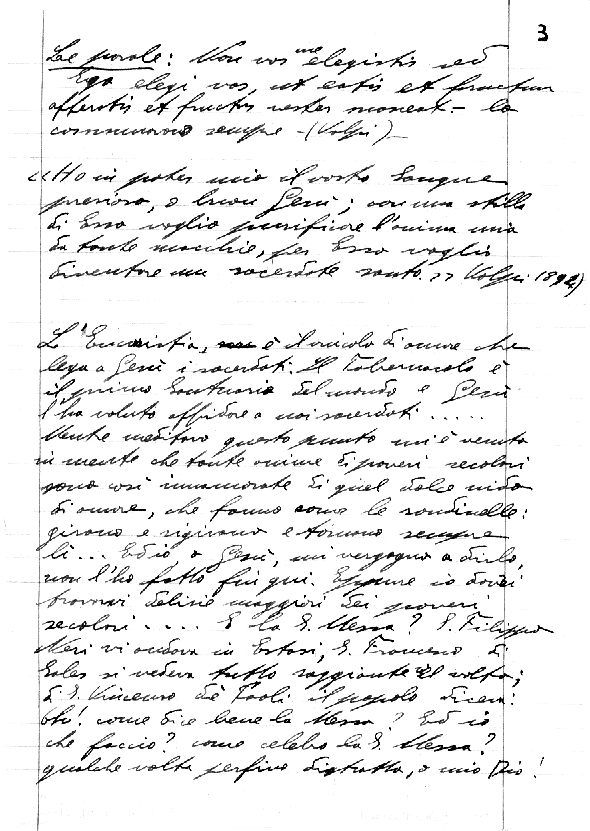 3
Le parole: Non vos me elegistis sed
Ego elegi vos, ut eatis et fructum
afferatis et fructus vester maneat - lo
commuovono sempre - (Volpi) -
« Ho in poter mio il vostro Sangue
prezioso, o buon Gesù; con una stilla
di Esso voglio purificare l'anima mia
da tante macchie, per Esso voglio
diventare un sacerdote santo. » Volpi 1892)
L'Eucaristia, è il vincolo di amore che
lega a Gesù i sacerdoti. Il Tabernacolo è
il primo Santuario del mondo e Gesù
l'ha voluto affidare a noi sacerdoti .....
Mentre meditavo questo punto mi è venuto
in mente che tante anime di poveri secolari
sono così innamorate di quel dolce nido
di amore, che fanno come le rondinelle:
girano e rigirano e tornano sempre
lì... Ed io o Gesù, mi vergogno a dirlo,
non l'ho fatto fin qui. Eppure io dovrei
trovarvi delizie maggiori dei poveri
secolari .... E la S. Messa? S. Filippo
Neri vi andava in Estasi, S. Francesco di
Sales si vedeva tutto raggiante il volto;
di S. Vincenzo de' Paoli il popolo diceva:
oh! come dice bene la Messa! Ed io
che faccio? come celebro la S. Messa?
qualche volta perfino distratto, o mio Dio!